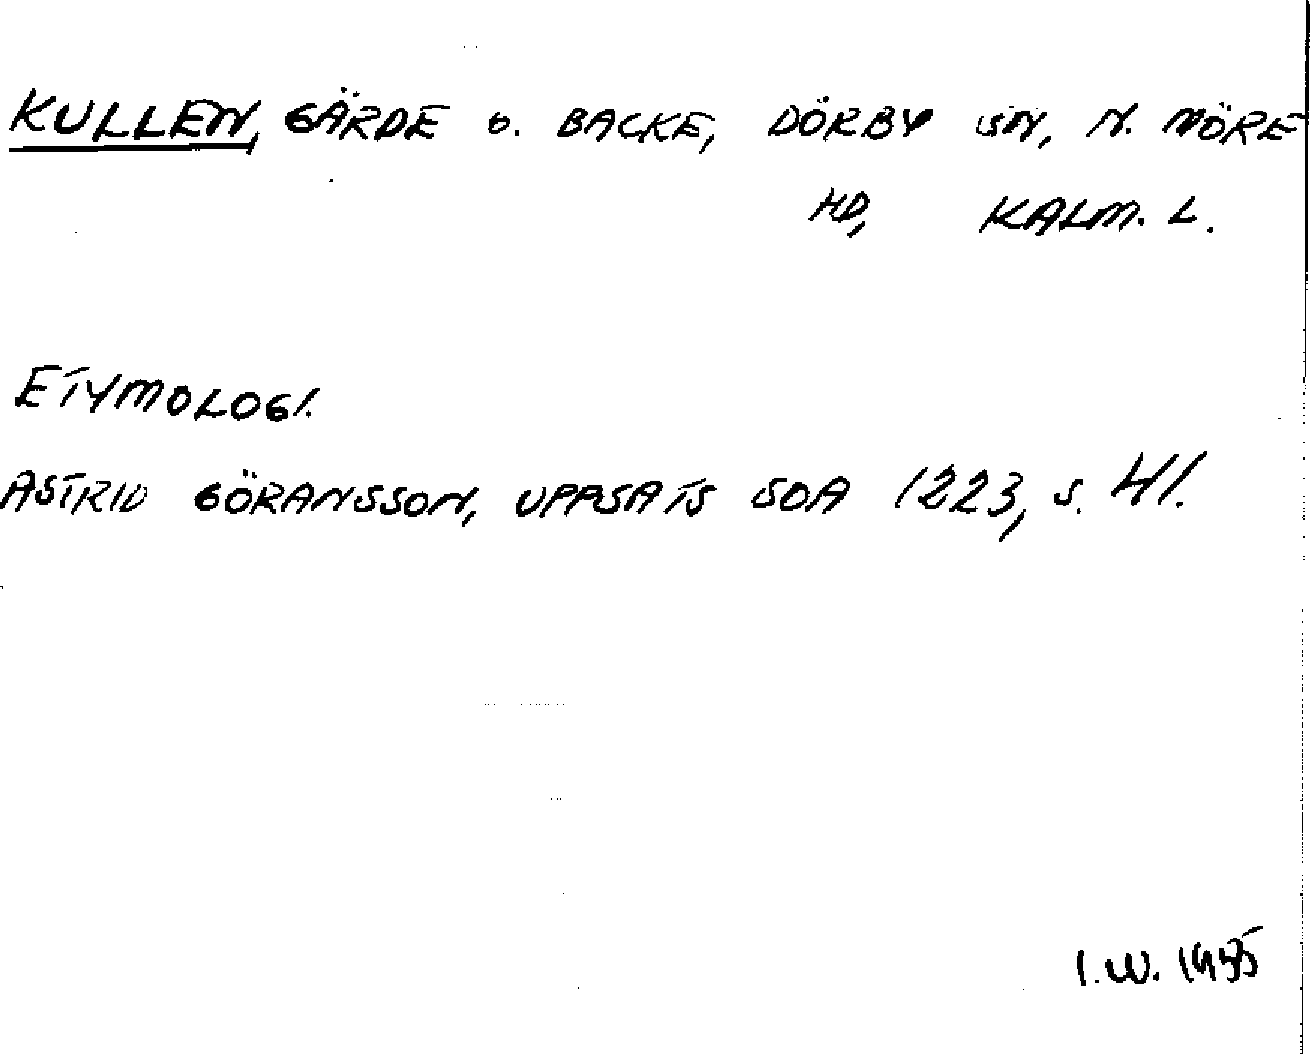 KULLEN, GÄRDE O. BACKE, DÖRBY SN, N. MÖRE
HD, KALM. L.
ETYMOLOGI.
ASTRID GÖRANSSON, UPPSATS SOA 1223, s. 41.
I.W.